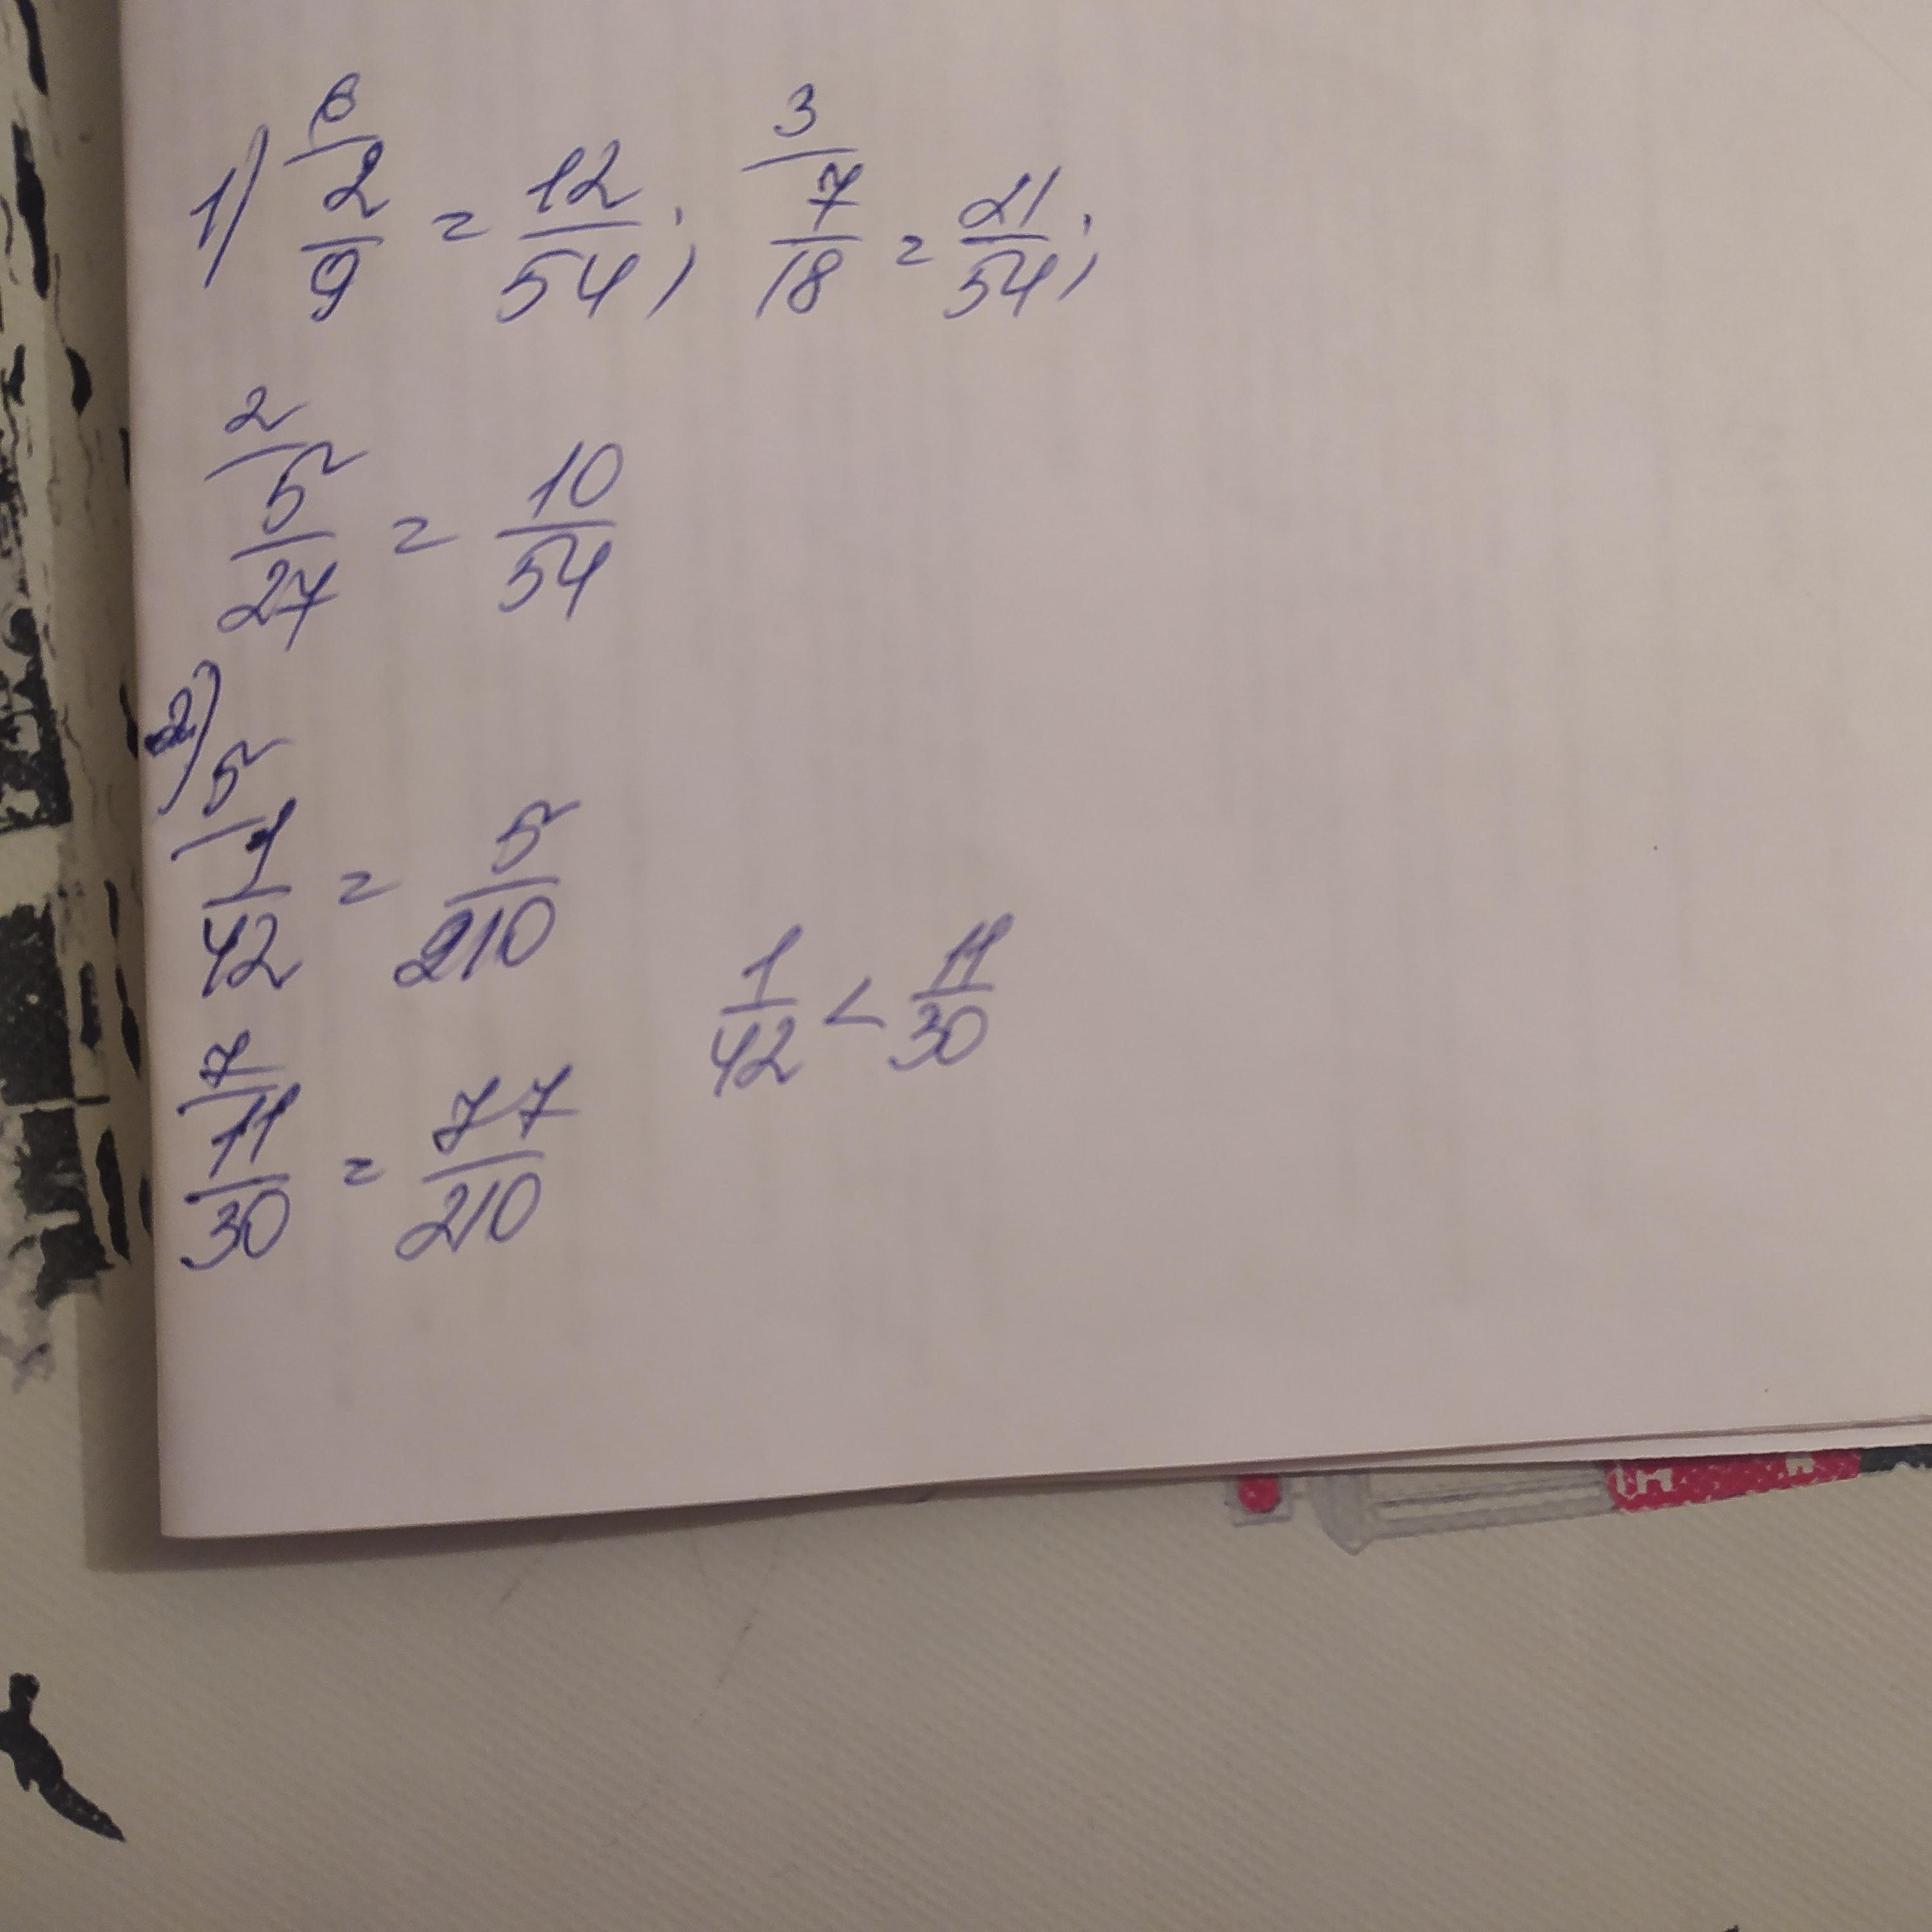 6 3
1) 2/9 = 12/54; 7/18 = 21/54;
2
5/27 = 10/54
2)
5
1/42 = 5/210
1/42 < 11/30
7
11/30 = 77/210